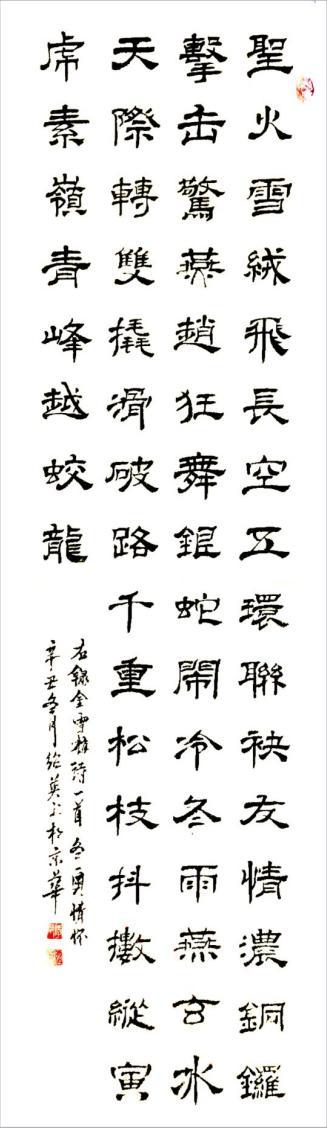 聖火雪絨飛長空五環聯袂友情濃銅鑼
擊缶驚燕趙狂舞銀蛇鬧冷冬雨燕玄冰
天際轉雙撬滑破路千重松枝抖擻縱寅
虎素嶺青峰越蛟龍
右錄金雪詩一首冬奧情怀
辛丑冬月英书於京華